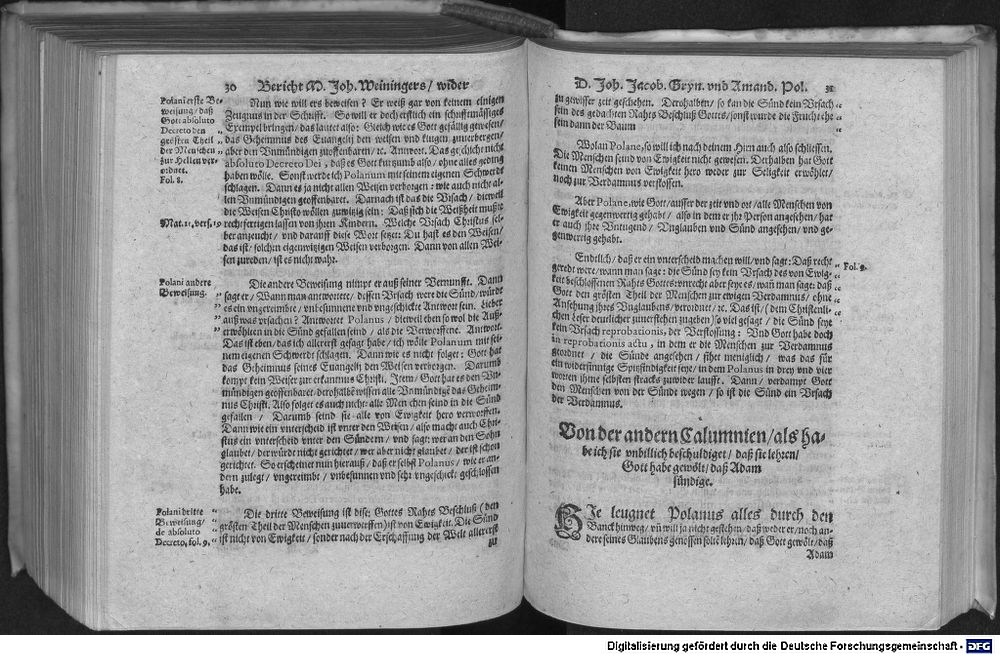 30 Bericht M. Joh. Weiningers / wider
Polani erste Be-
weisung / daß
Gott absoluto
Decreto den
grösten Theil
der Menschen
zur Hellen ver-
ordnet.
Fol. 8.
Nun wie will ers beweisen? Er weiß gar von keinem einigen
Zeugnus in der Schrifft. So will er doch erstlich ein schrifftmässiges
Exempel bringen / das lautet also: Gleich wie es Gott gefällig gewesen /
das Geheimnus des Euangelij den weisen und klugen zuuerbergen /
aber den Vnmündigen zuoffenbaren / ꝛc. Antwort. Das geschicht nicht
absoluto Decreto Dei, daß es Gott kurzumb also / ohne alles geding
haben wölle. Sonst werde ich Polanum mit seinem eigenen Schwerdt
schlagen. Dann es ja nicht allen Weisen verborgen: wie auch nicht al-
len Vnmündigen geoffenbaret. Darnach ist das die Vrsach / dieweil
die Weisen Christo wöllen zuwitzig sein: Daß sich die Weißheit mußte
Mat. 11. vers. 19
rechtfertigen lassen von ihren Kindern. Welche Vrsach Christus sel-
ber anzeucht / und darauff diese Wort setzet: Du hast es den Weisen /
das ist / solchen eigenwitzigen Weisen verborgen. Dann von allen Wei-
sen zureden / ist es nicht wahr.
Polani andere
Beweisung.
Die andere Beweisung nimpt er auß seiner Vernunfft. Dann
sagt er / Wann man antwortete / dessen Vrsach were die Sünd / würde
es ein ungereimbte / unbesunnene und ungeschickte Antwort sein. Lieber
auß was ursachen? Antwortet Polanus / dieweil eben so wol die Auß-
erwöhlten in die Sünd gefallen seind / als die Verworffene. Antwort.
Das ist eben / das ich allererst gesagt habe / ich wölle Polanum mit sei-
nem eigenen Schwerdt schlagen. Dann wie es nicht folget: Gott hat
das Geheimnus seines Euangelij den Weisen verborgen. Darumb
kompt kein Weiser zur erkanntnus Christi. Item / Gott hat es den Vn-
mündigen geoffenbaret / derohalben wissen alle Vnmündige das Geheim-
nus Christi. Also folget es auch nicht: alle Menschen seind in die Sünd
gefallen / Darumb seind sie alle von Ewigkeit hero verworffen.
Dann wie ein unterscheid ist unter den Weisen / also macht auch Chri-
stus ein unterscheid unter den Sündern / und sagt: wer an den Sohn
glaubet / der würdt nicht gerichtet / wer aber nicht glaubet / der ist schon
gerichtet. So erscheinet nun hierauß / daß er selbst Polanus / wie er an-
dern zulegt / ungereimbt / unbesunnen und sehr ungeschickt geschlossen
habe.
Polani dritte
Beweisung /
de absoluto
Decreto, fol. 9.
Die dritte Beweisung ist dise: Gottes Rahts Beschluß (den
grösten Theil der Menschen zuuerwerffen) ist von Ewigkeit. Die Sünd
ist nicht von Ewigkeit / sonder nach der Erschaffung der Welt allererst
zu
D. Joh. Jacob. Gryn. und Amand. Pol. 31
zu gewisser zeit geschehen. Derohalben / so kan die Sünd kein Vrsach
sein des gedachten Rahts Beschluß Gottes / sonst wurde die Frucht ehe
sein dann der Baum
Wolan Polane, so will ich nach deinem Hirn auch also schliessen.
Die Menschen seind von Ewigkeit nicht gewesen. Derhalben hat Gott
keinen Menschen von Ewigkeit hero weder zur Seligkeit erwöhlet /
noch zur Verdamnus verstossen.
Aber Polane, wie Gott / ausser der zeit und ort / alle Menschen von
Ewigkeit gegenwertig gehabt / also in dem er ihr Person angesehen / hat
er auch ihre Vntugend / Vnglauben und Sünd angesehen / und ge-
genwertig gehabt.
Endtlich / daß er ein unterscheid machen will / und sagt: Daß recht
Fol. 9.
geredt were / wann man sage: die Sünd sey kein Vrsach des von Ewig-
keit beschlossenen Rahts Gottes: unrecht aber seye es / wañ man sage: daß
Gott den grösten Theil der Menschen zur ewigen Verdamnus / ohne
Ansehung ihres Vnglaubens / verordnet / ꝛc. Das ist / (dem Christenli-
chen Leser deutlicher zuuerstehen zugeben) so viel gesagt / die Sünd seye
kein Vrsach reprobationis, der Verstossung: Vnd Gott habe doch
in reprobationis actu, in dem er die Menschen zur Verdamnus
geordnet / die Sünde angesehen / sihet meniglich / was das für
ein widersinnige Spitzfindigkeit seye / in dem Polanus in drey und vier
worten ihme selbsten stracks zuwider laufft. Dann / verdampt Gott
den Menschen von der Sünd wegen / so ist die Sünd ein Vrsach
der Verdamnus.
Von der andern Calumnien / als ha-
be ich sie unbillich beschuldiget / daß sie lehren /
Gott habe gewölt / daß Adam
sündige.
HIe leugnet Polanus alles durch den
Banck hinweg / uñ will ja nicht gestehen / daß weder er / noch an-
dere seines Glaubens genossen solte lehren / daß Gott gewölt / daß
Adam
Digitalisierung gefördert durch die Deutsche Forschungsgemeinschaft - DFG